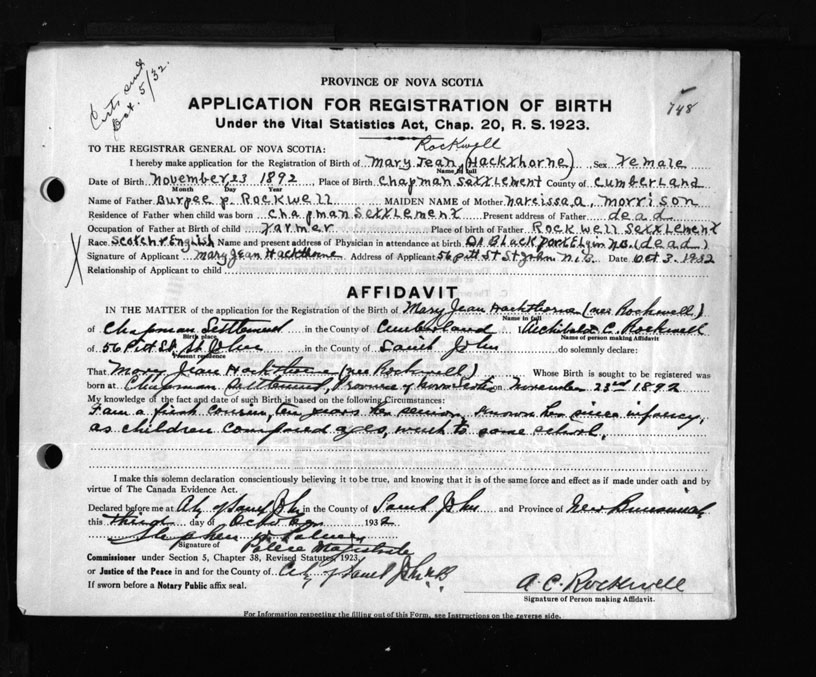 Certs sent
Oct. 5/32.
748
PROVINCE OF NOVA SCOTIA
APPLICATION FOR REGISTRATION OF BIRTH
Under the Vital Statistics Act, Chap. 20, R. S. 1923.
TO THE REGISTRAR GENERAL OF NOVA SCOTIA: Rockwell
I hereby make application for the Registration of Birth of Mary Jean (Hackthorne) Sex Female
Name in full
Date of Birth November 23 1892 Place of Birth Chapman Settlement County of Cumberland
Month Day Year
Name of Father Burpee P. Rockwell MAIDEN NAME of Mother Narcissa A. Morrison
Residence of Father when child was born Chapman Settlement Present address of Father dead
Occupation of Father at Birth of child Farmer Place of birth of Father Rockwell Settlement
Race Scotch & English Name and present address of Physician in attendance at birth Dr Black Port Elgin N.B. (dead)
X Signature of Applicant Mary Jean Hackthorne Address of Applicant 56 Pitt St St John N.B. Date Oct 3. 1932
Relationship of Applicant to child
AFFIDAVIT
IN THE MATTER of the application for the Registration of the Birth of Mary Jean Hackthorne (nee Rockwell)
Name in full
of Chapman Settlement in the County of Cumberland Archibald C. Rockwell
Birth place Name of person making Affidavit
of 56 Pitt St. St John in the County of Saint John do solemnly declare:
Present residence
That Mary Jean Hackthorne (nee Rockwell) Whose Birth is sought to be registered was
born at Chapman Settlement, Province of Nova Scotia on November 23rd 1892
My knowledge of the fact and date of such Birth is based on the following Circumstances:
I am a first cousin, ten years her senior, known her since infancy,
as children compared ages, went to same school.
I make this solemn declaration conscientiously believing it to be true, and knowing that it is of the same force and effect as if made under oath and by
virtue of The Canada Evidence Act.
Declared before me at City of Saint John in the County of Saint John and Province of New Brunswick
this Third day of October 1932
Signature of Police Magistrate
Commissioner under Section 5, Chapter 38, Revised Statutes 1923,
or Justice of the Peace in and for the County of City of Saint John N.B.
If sworn before a Notary Public affix seal.
A. C. Rockwell
Signature of Person making Affidavit.
For Information respecting the filling out of this Form, see Instructions on the reverse side.